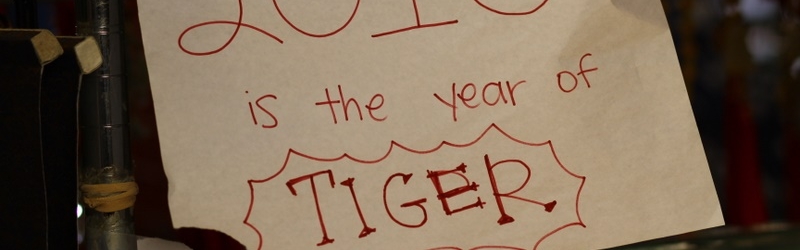 2010
is the year of
TIGER